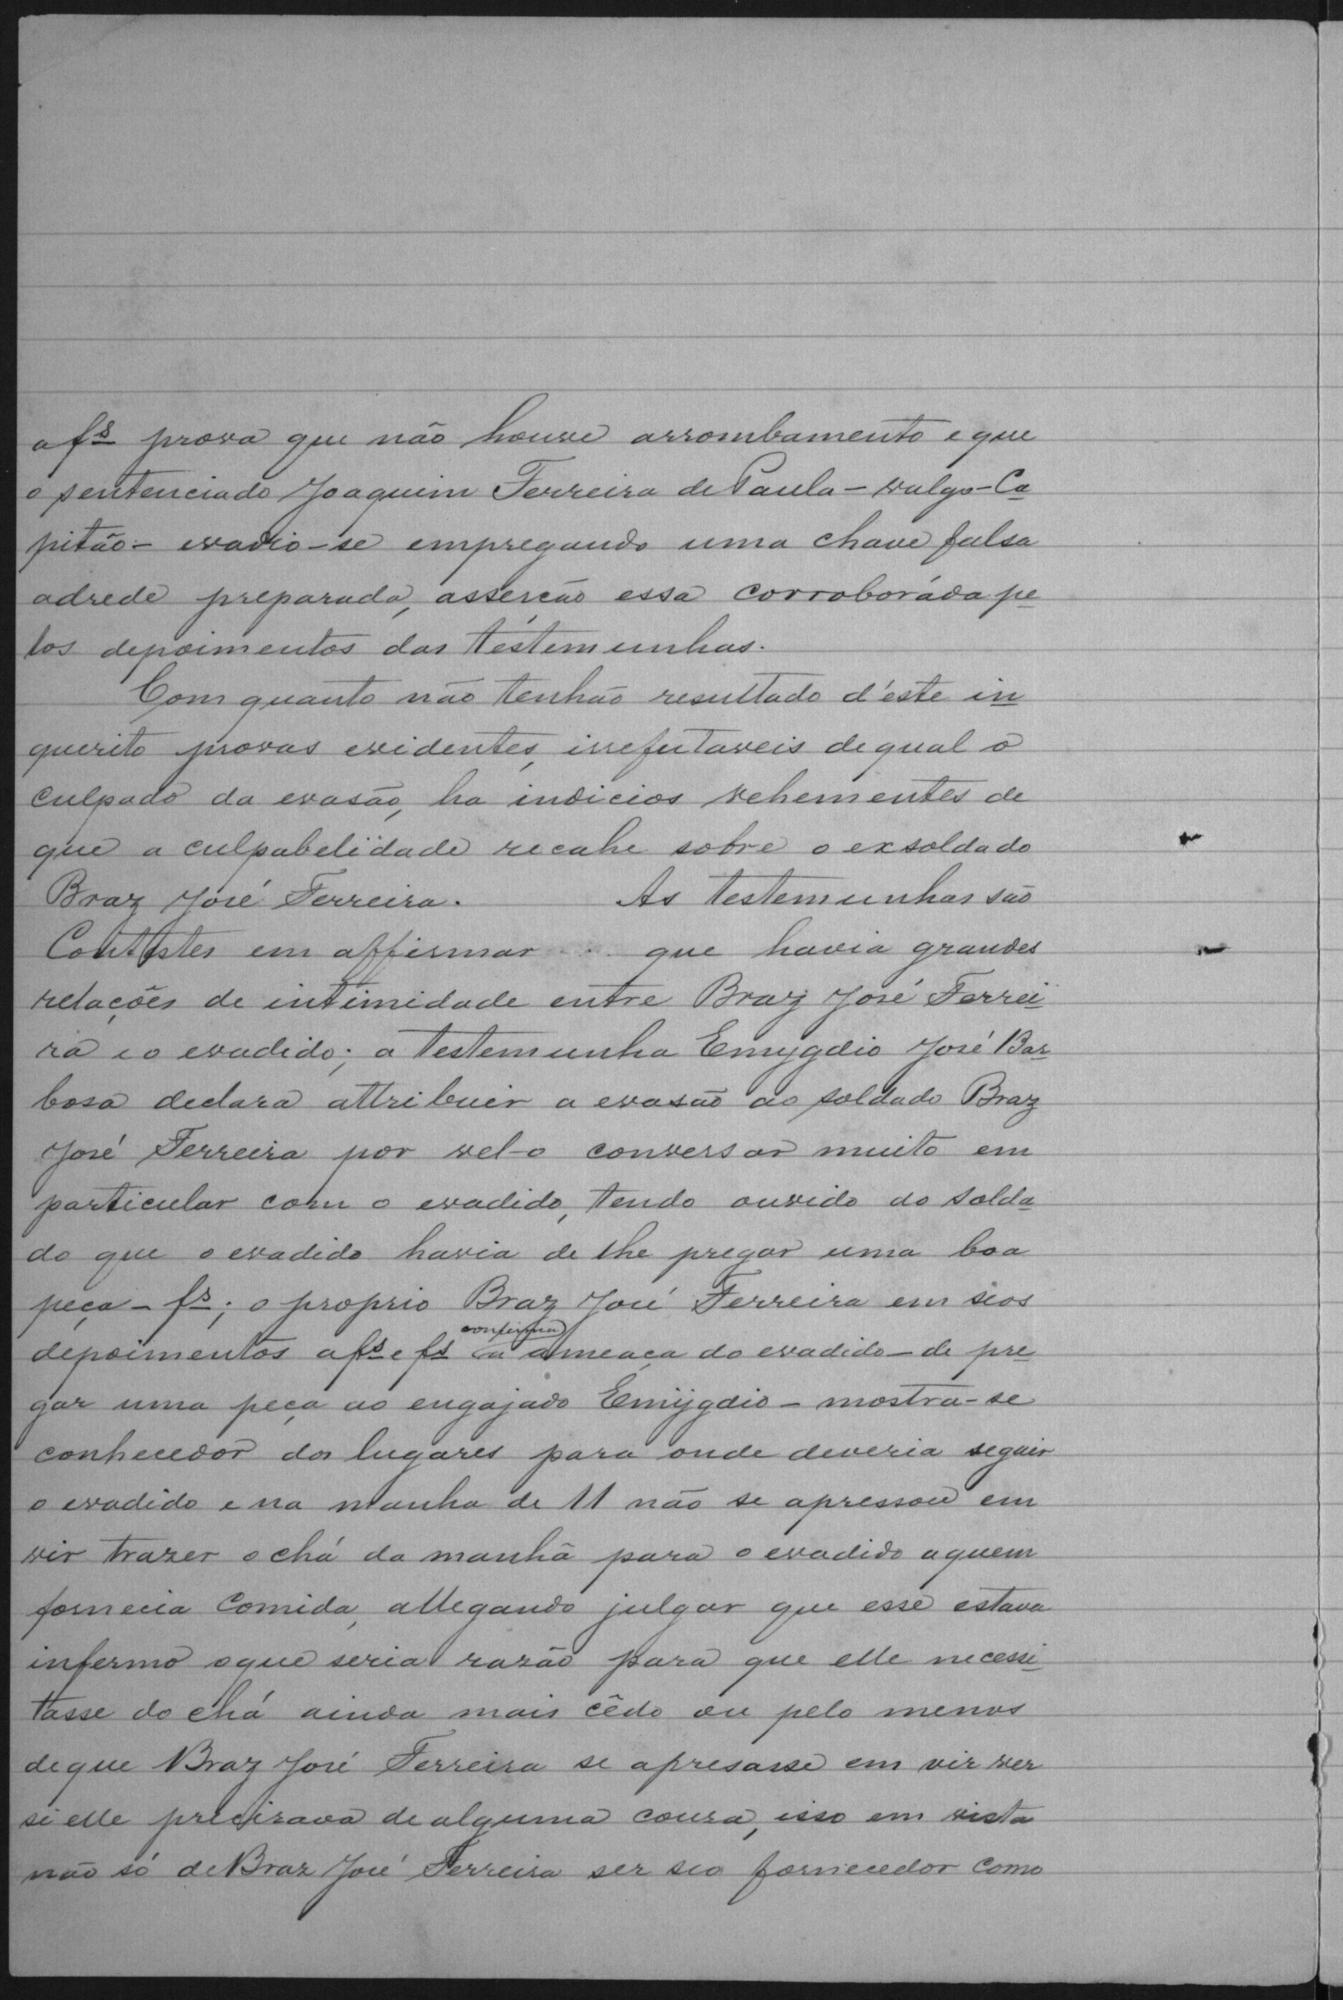 a fs prova que não houve arrombamento e que
o sentenciado Joaquim Ferreira de Paula – vulgo – Ca
pitão – evadio-se empregando uma chave falsa
adrede preparada, asserção essa corroborada pe
los depoimentos das testemunhas.
Com quanto não tenhão resultado d'este in
querito provas evidentes, irrefutaveis de qual o
culpado da evasão, ha indicios vehementes de
que a culpabelidade recahe sobre o ex soldado
Braz José Ferreira. As testemunhas são
Contestes em affirmar que havia grandes
relações de intimidade entre Braz José Ferrei
ra e o evadido; a testemunha Emygdio José Bar
bosa declara attribuir a evasão ao soldado Braz
José Ferreira por vel-o conversar muito em
particular com o evadido, tendo ouvido do solda
do que o evadido havia de lhe pregar uma boa
peça – fs; o proprio Braz José Ferreira em seos
depoimentos a fs e fs confirma a ameaça do evadido – de pre
gar uma peça ao engajado Emygdio – mostra-se
conhecedor dos lugares para onde deveria seguir
o evadido e na manha de 11 não se apressou em
vir trazer o chá da manhã para o evadido a quem
fornecia comida, allegando julgar que esse estava
infermo o que seria razão para que elle necessi
tasse do chá ainda mais cêdo ou pelo menos
de que Braz José Ferreira se apresasse em vir ver
si elle precizava de alguma couza, isso em vista
não só de Braz José Ferreira ser seo fornecedor como